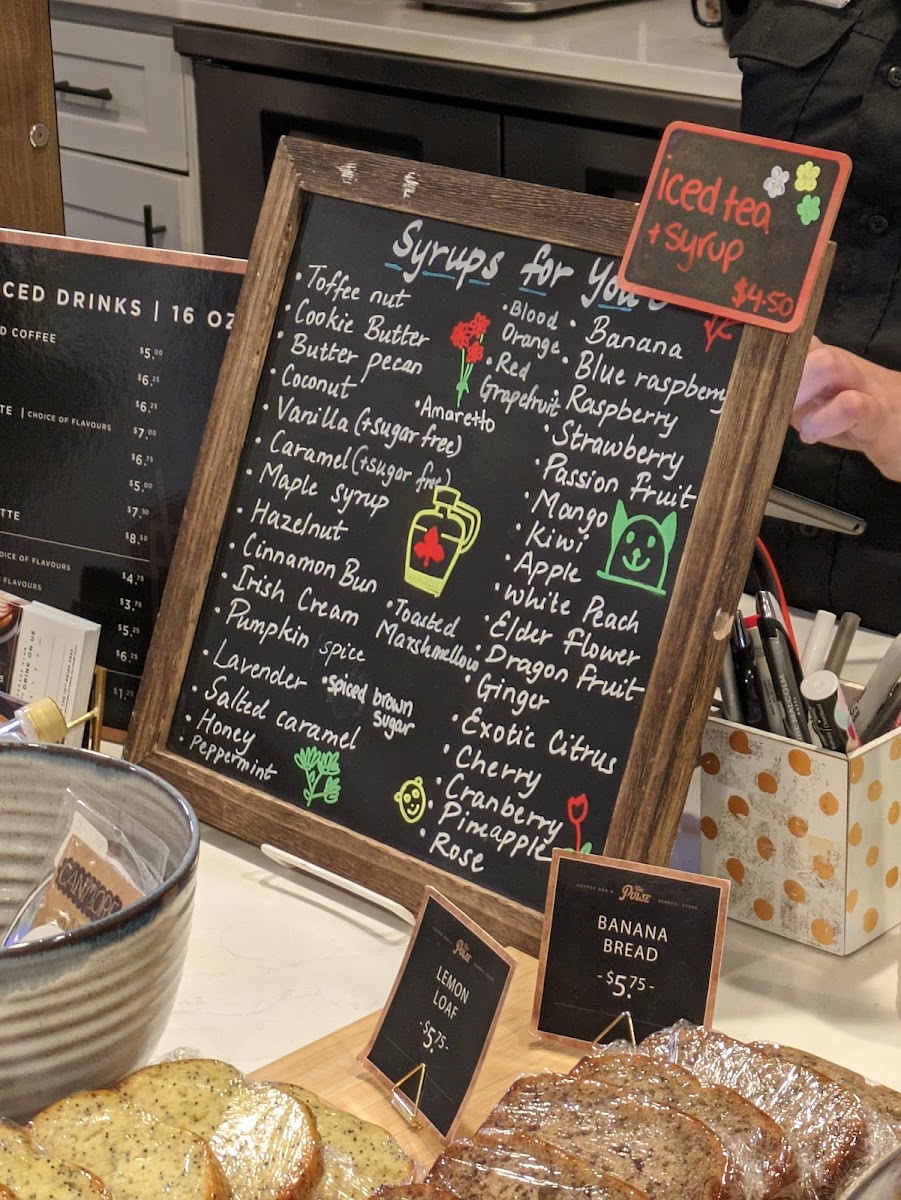 CED DRINKS | 16 OZ
D COFFEE
$5.00
$6.25
$6.25
TE | CHOICE OF FLAVOURS
$7.00
$6.75
$5.00
TTE
$7.50
$8.50
OICE OF FLAVOURS
$4.75
FLAVOURS
$3.75
$5.25
$6.25
$1.25
DRINK ON US
Syrups for You
• Toffee nut
• Cookie Butter
• Butter pecan
• Coconut
• Vanilla (+sugar free)
• Caramel (+sugar free)
• Maple syrup
• Hazelnut
• Cinnamon Bun
• Irish Cream
• Pumpkin spice
• Lavender
• Salted caramel
• Honey
• Peppermint
• Blood
Orange
• Red
Grapefruit
• Amaretto
• Toasted
Marshmellow
• spiced brown
sugar
• Banana
• Blue raspberry
• Raspberry
• Strawberry
• Passion Fruit
• Mango
• Kiwi
• Apple
• White Peach
• Elder Flower
• Dragon Fruit
• Ginger
• Exotic Citrus
• Cherry
• Cranberry
• Pineapple
• Rose
iced tea
+ syrup
$4.50
COFFEE BAR & The PULSE GENERAL STORE
BANANA
BREAD
-$5.75-
The PULSE
LEMON
LOAF
-$5.75-